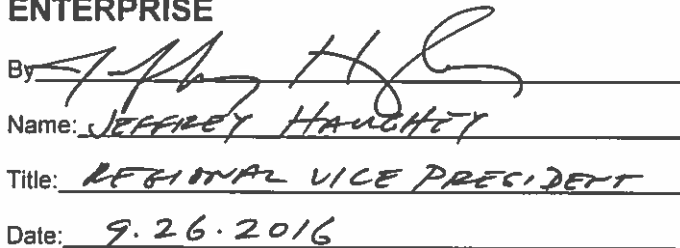 ENTERPRISE
By
Name: JEFFREY HAUGHEY
Title: REGIONAL VICE PRESIDENT
Date: 9.26.2016